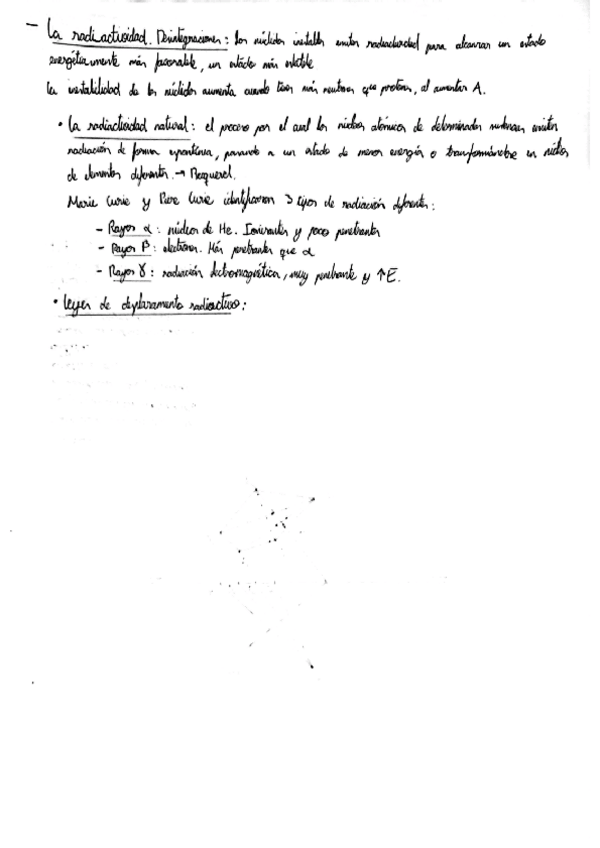 - La radiactividad. Desintegraciones: los núclidos inestables emiten radiactividad para alcanzar un estado
energéticamente más favorable, un estado más estable
La inestabilidad de los núclidos aumenta cuando tienen más neutrones que protones, al aumentar A.
• La radiactividad natural: el proceso por el cual los núcleos atómicos de determinadas sustancias emiten
radiación de forma espontánea, pasando a un estado de menos energía o transformándose en núcleos
de elementos diferentes. → Becquerel.
Marie Curie y Pierre Curie identificaron 3 tipos de radiación diferentes:
- Rayos α: núcleos de He. Ionizantes y poco penetrantes
- Rayos β: electrones. Más penetrantes que α
- Rayos γ: radiación electromagnética, muy penetrante y ↑E.
• Leyes de desplazamiento radiactivo: